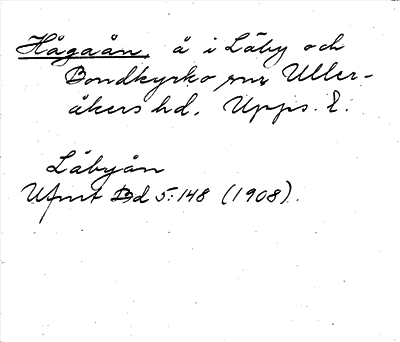 Hågaån, å i Läby och
Bondkyrko snr Uller-
åkers hd. Upps. l.
Läbyån
UFmt Bd 5:148 (1908).